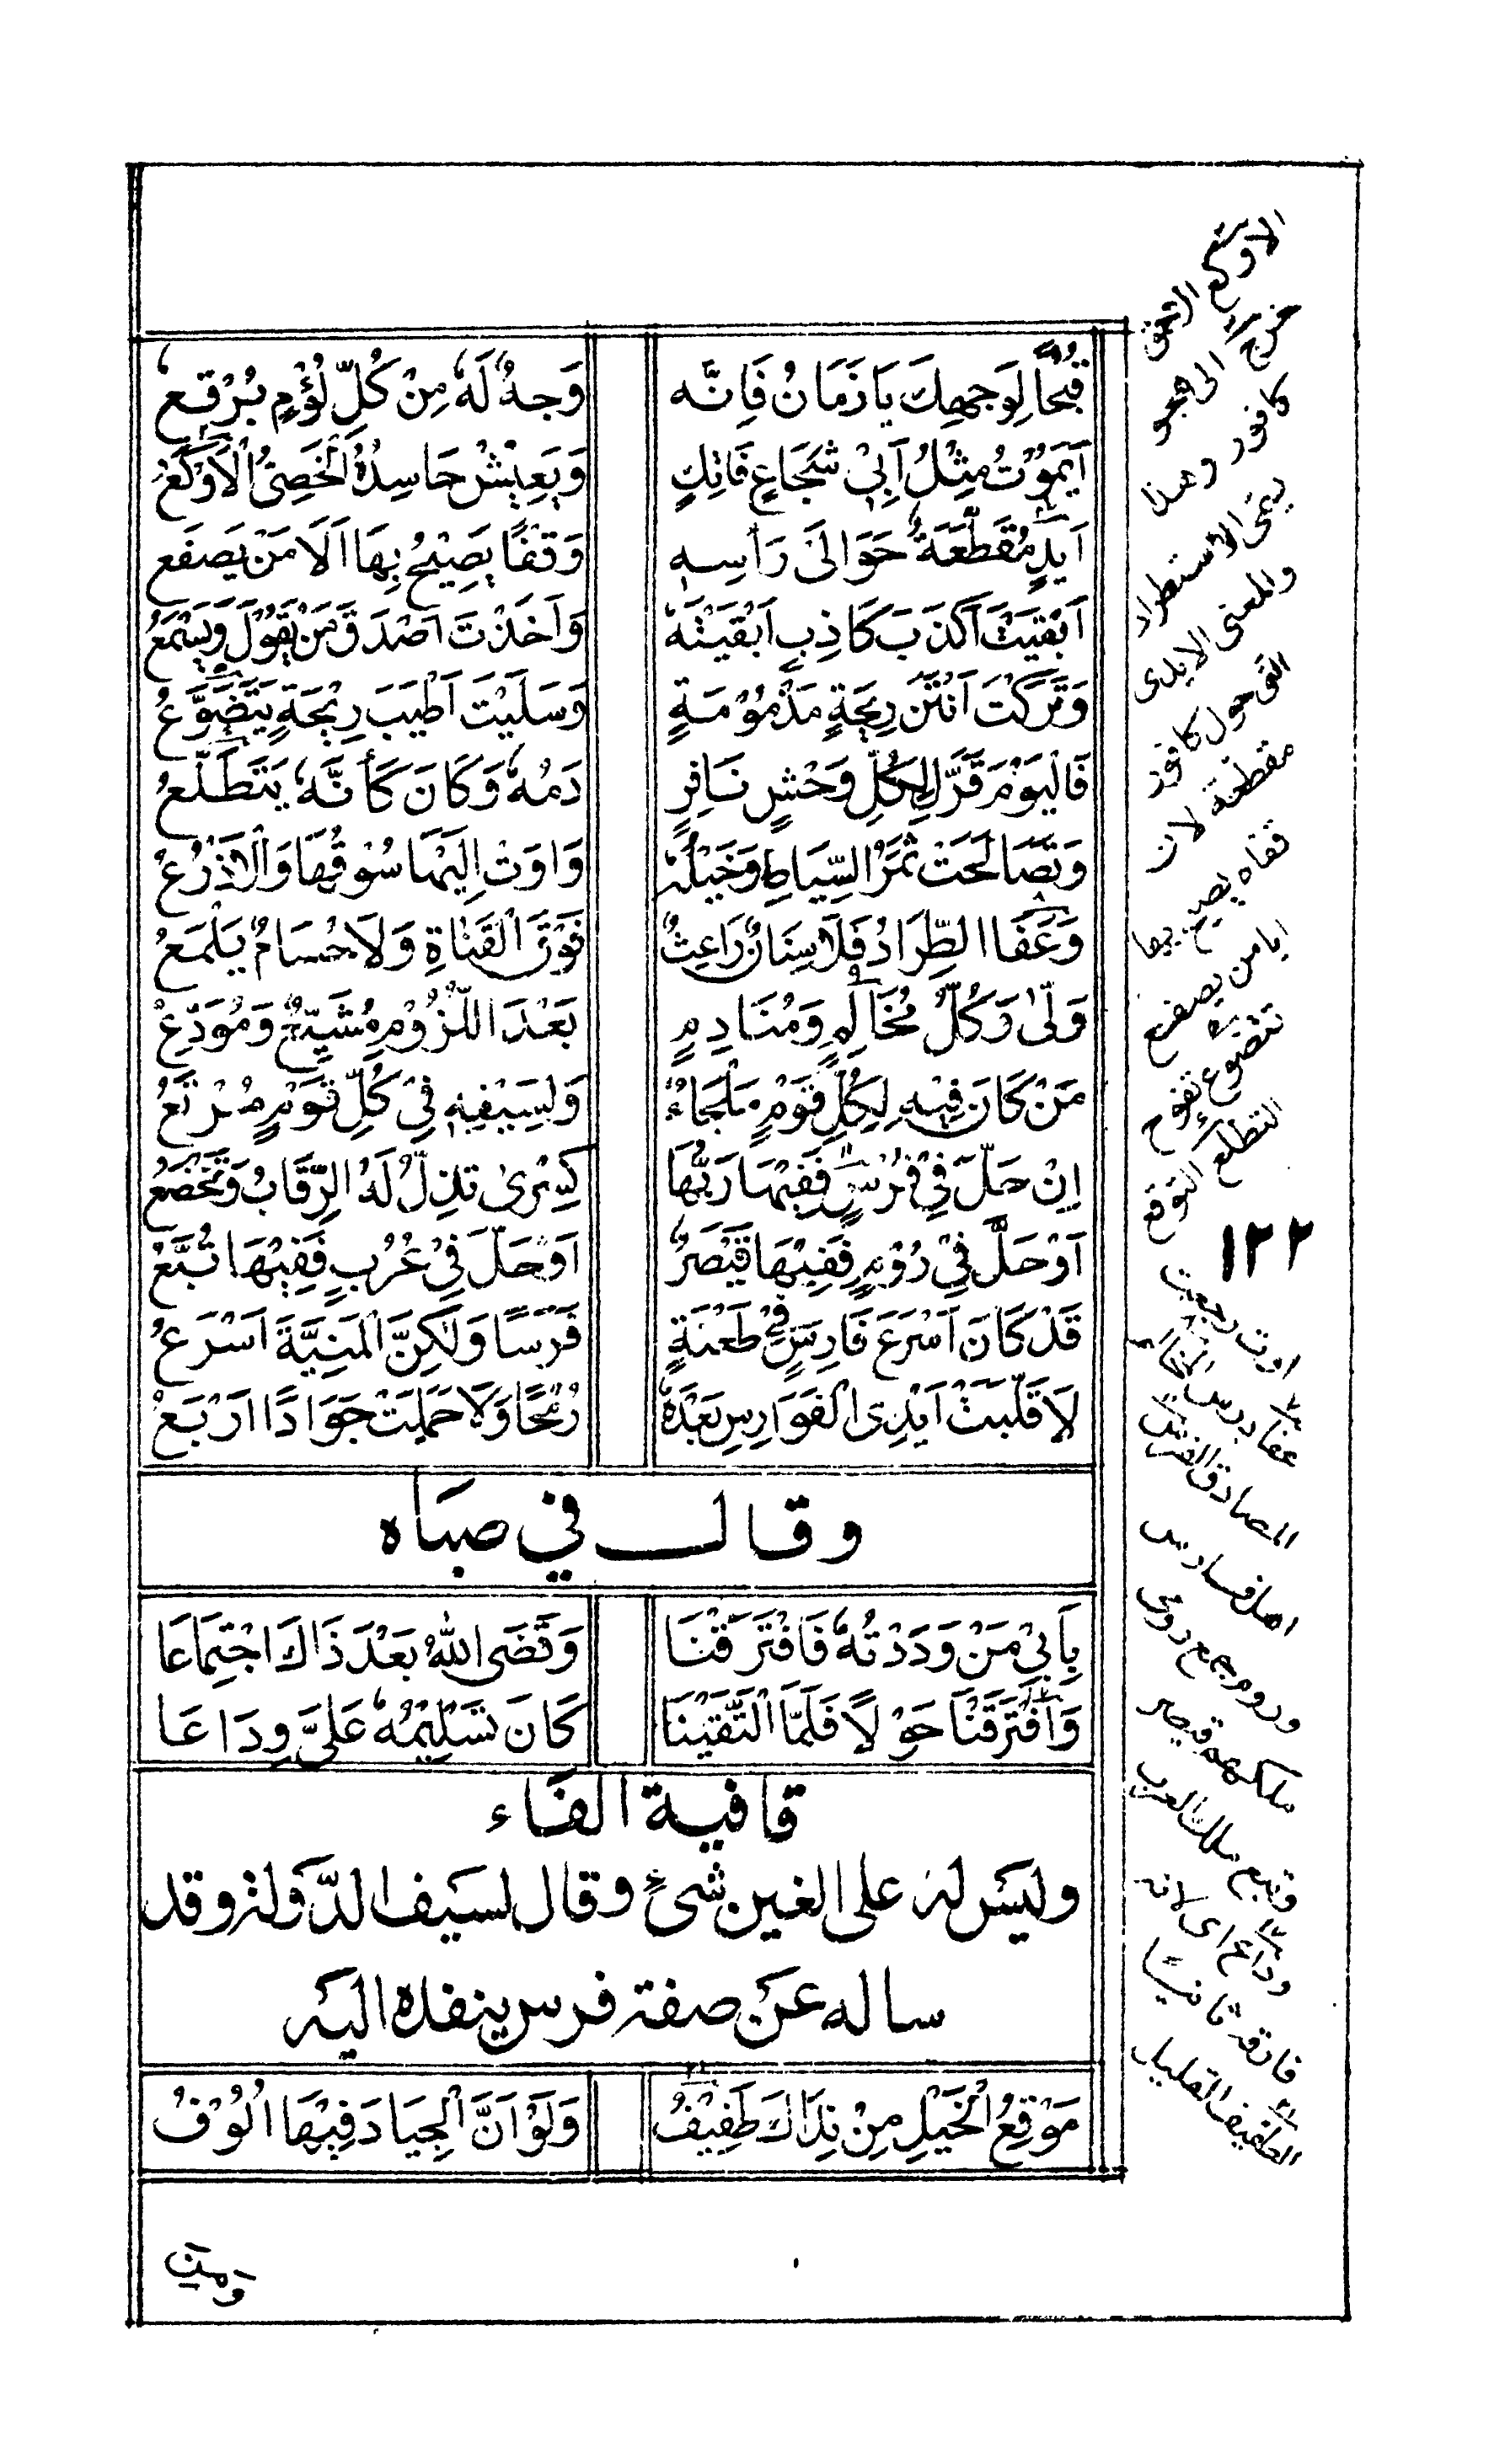 قُبْحًا لِوَجْهِكَ يَا زَمَانُ فَاِنَّه وَجْهٌ لَهٗ مِنْ كُلِّ لُؤْمٍ بُرْقِع
اَيَمُوْتُ مِثْلُ اَبِيْ شُجَاعٍ فَاتِكٍ وَيَعِيْشُ حَاسِدُهُ الْخَصِيُّ الْاَوْكَعُ
اَيْدٍ مُقَطَّعَةٌ حَوَالَیْ رَأسِهِ وَقَفًا يَصِيْحُ بِهَا اَلَا مَنْ يَصْفَع
اَبْقَيْتَ اَكْذَبَ كَاذِبٍ اَبْقَيْتَهٗ وَاَخَذْتَ اَصْدَقَ مَنْ يَقُوْلُ وَيَسْمَعُ
وَتَرَكْتَ اَنْتَنَ رِيْحَةٍ مَذْمُوْمَةٍ وَسَلَبْتَ اَطْيَبَ رِيْحَةٍ يَتَضَوَّعُ
فَالْيَوْمَ قَرَّ لِكُلِّ وَحْشٍ نَافِرٍ دَمُهٗ وَكَانَ كَأنَّهٗ يَتَطَلَّعُ
وَتَصَالَحَتْ ثَمَرُ السِّيَاطِ وَخَيْلُهٗ وَاوَتْ اِلَيْهَا سُوْقُهَا وَالْاَذْرُعُ
وَعَفَا الطِّرَادُ فَلَا سِنَانٌ رَاعِفٌ فَوْقَ الْقَنَاةِ وَلَا حُسَامٌ يَلْمَعُ
وَلّٰى وَكُلُّ مُخَالِمٍ وَمُنَادِمٍ بَعْدَ اللُّزُوْمِ مُشَيِّعٌ وَمُوَدِّعُ
مَنْ كَانَ فِيْهِ لِكُلِّ قَوْمٍ مَلْجَاءٌ وَلِسَيْفِهِ فِيْ كُلِّ قَوْمٍ مَرْتَعُ
اِنْ حَلَّ فِيْ فُرْسٍ فَفِيْهَا رَبُّهَا كِسْرٰى تَذِلُّ لَهُ الرِّقَابُ وَتَخْضَعُ
اَوْ حَلَّ فِيْ رُوْمٍ فَفِيْهَا قَيْصَرٌ اَوْ حَلَّ فِيْ عُرْبٍ فَفِيْهَا تُبَّعُ
قَدْ كَانَ اَسْرَعَ فَارِسٍ فِيْ طَعْنَةٍ فَرَسًا وَلٰكِنَّ الْمَنِيَّةَ اَسْرَعُ
لَا قَلَّبَتْ اَيْدِى الْفَوَارِسِ بَعْدَهٗ رُمْحًا وَلَا حَمَلَتْ جَوَادًا اَرْبَعُ
وقال في صباه
بِاَبِيْ مَنْ وَدَدْتُهٗ فَافْتَرَقْنَا وَقَضَى اللهُ بَعْدَ ذَاكَ اجْتِمَاعَا
وَافْتَرَقْنَا حَوْلًا فَلَمَّا الْتَقَيْنَا كَانَ تَسْلِيْمُهٗ عَلَيَّ وِدَاعَا
قافية الفاء
وليس له على الغين شئ وقال لسيف الدّولة وقد
ساله عن صفة فرس ينفذه اليه
مَوْقِعُ الْخَيْلِ مِنْ نِدَاكَ طَفِيْفُ وَلَوْ اَنَّ الْجِيَادَ فِيْهَا اُلُوْفُ
ومن
الاوكع الاحمق
خرج الى هجو
كافور وهذا
يسمى الاستطراد
والمعنى الايدى
التى حول كافور
مقطعة لان
قفاه يصيح بها
ايا من يصفع
تتضوع تفوح
التطلع التوقع
١٢٢
اوت رجعت
عفا درس
اهل فارس
وروم جمع رومى
ملكهم قيصر
وتبع ملك العرب
وداع اى لانه
فارقه ثانيا
الطفيف القليل